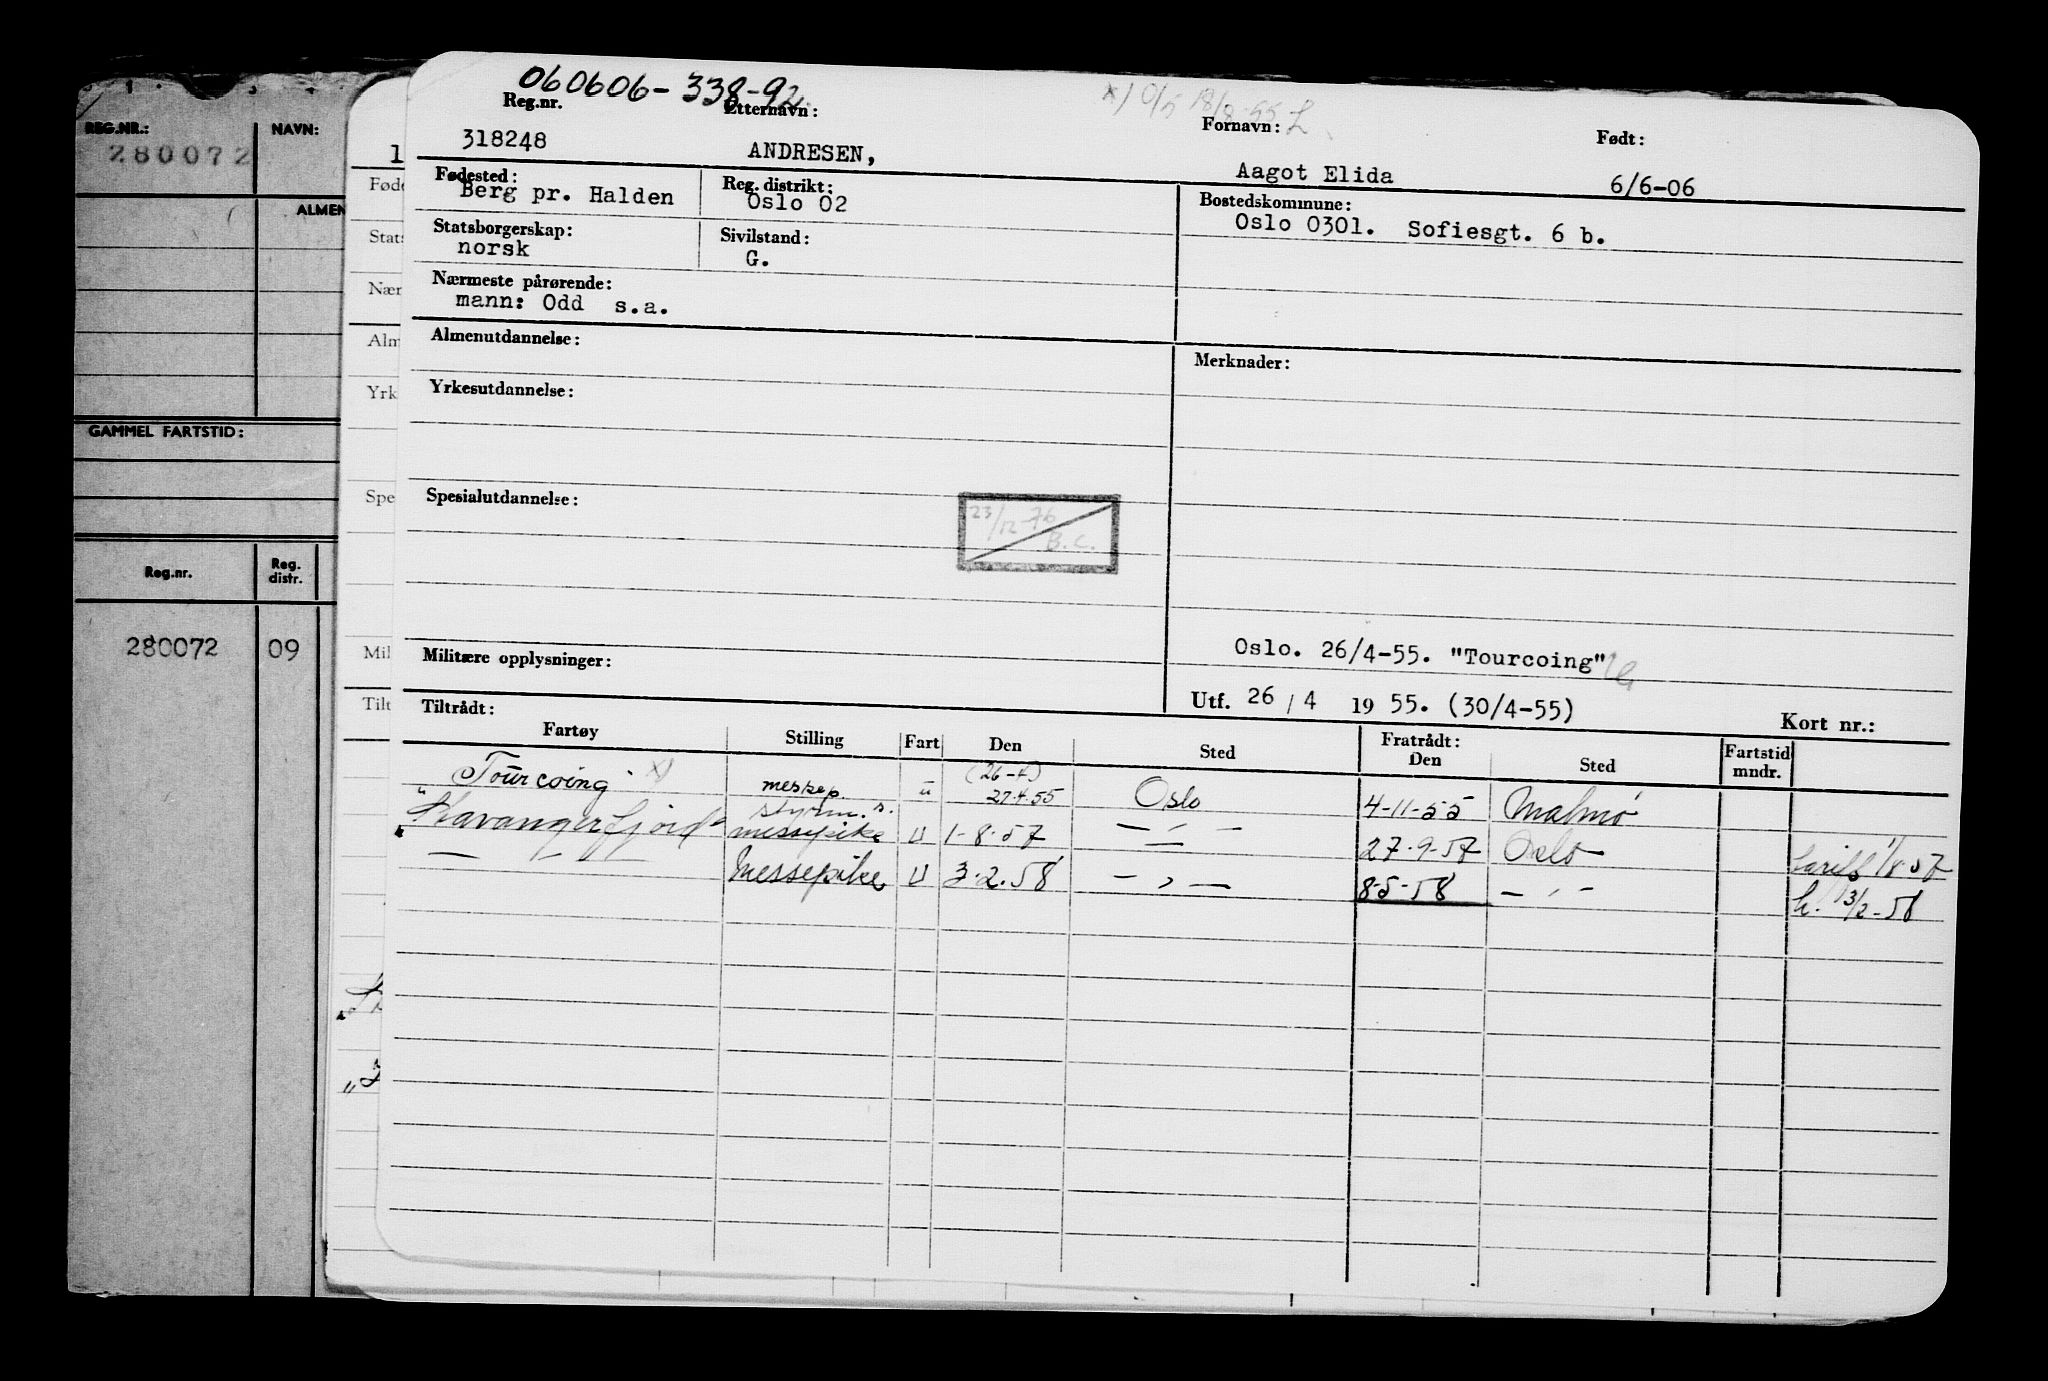 060606-338-92
x) O/S 18/8-55 L
Reg.nr. Etternavn: Fornavn: Født:
318248 ANDRESEN, Aagot Elida 6/6-06
Fødested: Reg. distrikt: Bostedskommune:
Berg pr. Halden Oslo 02 Oslo 0301. Sofiesgt. 6 b.
Statsborgerskap: Sivilstand:
norsk G.
Nærmeste pårørende:
mann: Odd s.a.
Almenutdannelse: Merknader:
Yrkesutdannelse:
Spesialutdannelse:
23/12-76
B.C.
Oslo. 26/4-55. "Tourcoing"
Militære opplysninger:
Utf. 26 / 4 19 55. (30/4-55)
Tiltrådt: Fratrådt: Kort nr.:
Fartøy Stilling Fart Den Sted Den Sted Fartstid mndr.
Tourcoing x) messep. u (26-4) 27.4.55 Oslo 4-11-55 Malmø
styrm. s.
"Stavangerfjord" messepike U 1-8-57 — " — 27-9-57 Oslo tariff 1/8-57
— " — Messepike U 3.2.58 — " — 8-5-58 — " — h. 3/2-58
REG.NR.: NAVN:
280072
ALMEN
GAMMEL FARTSTID:
Reg.nr. Reg. distr.
280072 09
1
Føde
Stats
Nær
Alm
Yrk
Spe
Mil
Tilt